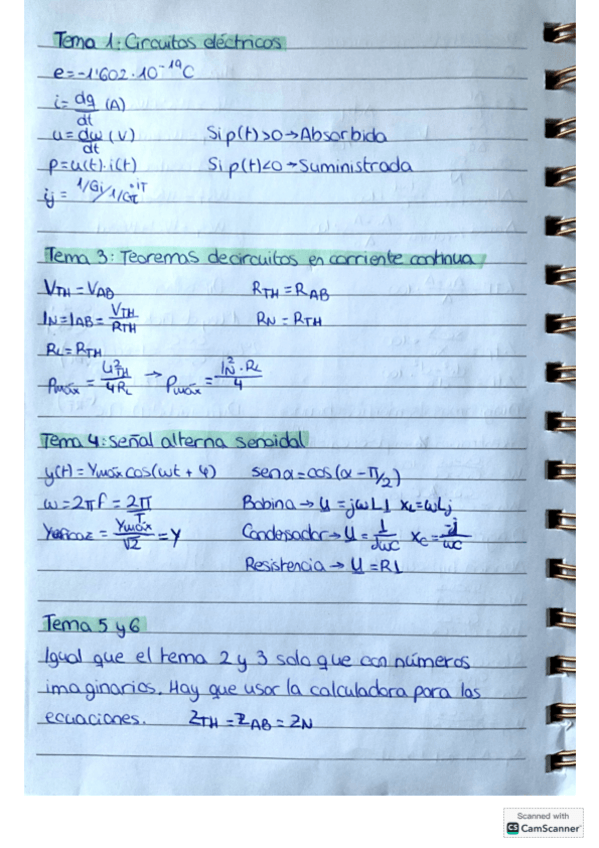 Tema 1: Circuitos eléctricos
e=-1'602·10⁻¹⁹C
i= dq/dt (A)
u= dw/dt (V) Si p(t)>0→Absorbida
p=u(t)·i(t) Si p(t)<0→Suministrada
ij =
Tema 3: Teoremas de circuitos en corriente continua
VTH = VAB RTH = RAB
IN=IAB= VTH/RTH RN = RTH
RL=RTH
Pmáx = U²TH/4RL → Pmáx = I²N·RL/4
Tema 4: Señal alterna senoidal
y(t)=Ymáx cos(wt + φ) senα=cos(α-π/2)
w=2πf= 2π/T Bobina → U =jwLI XL=wLj
Yeficaz = Ymáx/√2 =Y Condensador→ U = I/jwC Xc= -j/wC
Resistencia → U =RI
Tema 5 y 6
Igual que el tema 2 y 3 solo que con números
imaginarios. Hay que usar la calculadora para las
ecuaciones. ZTH = ZAB = ZN
Scanned with
CS CamScanner